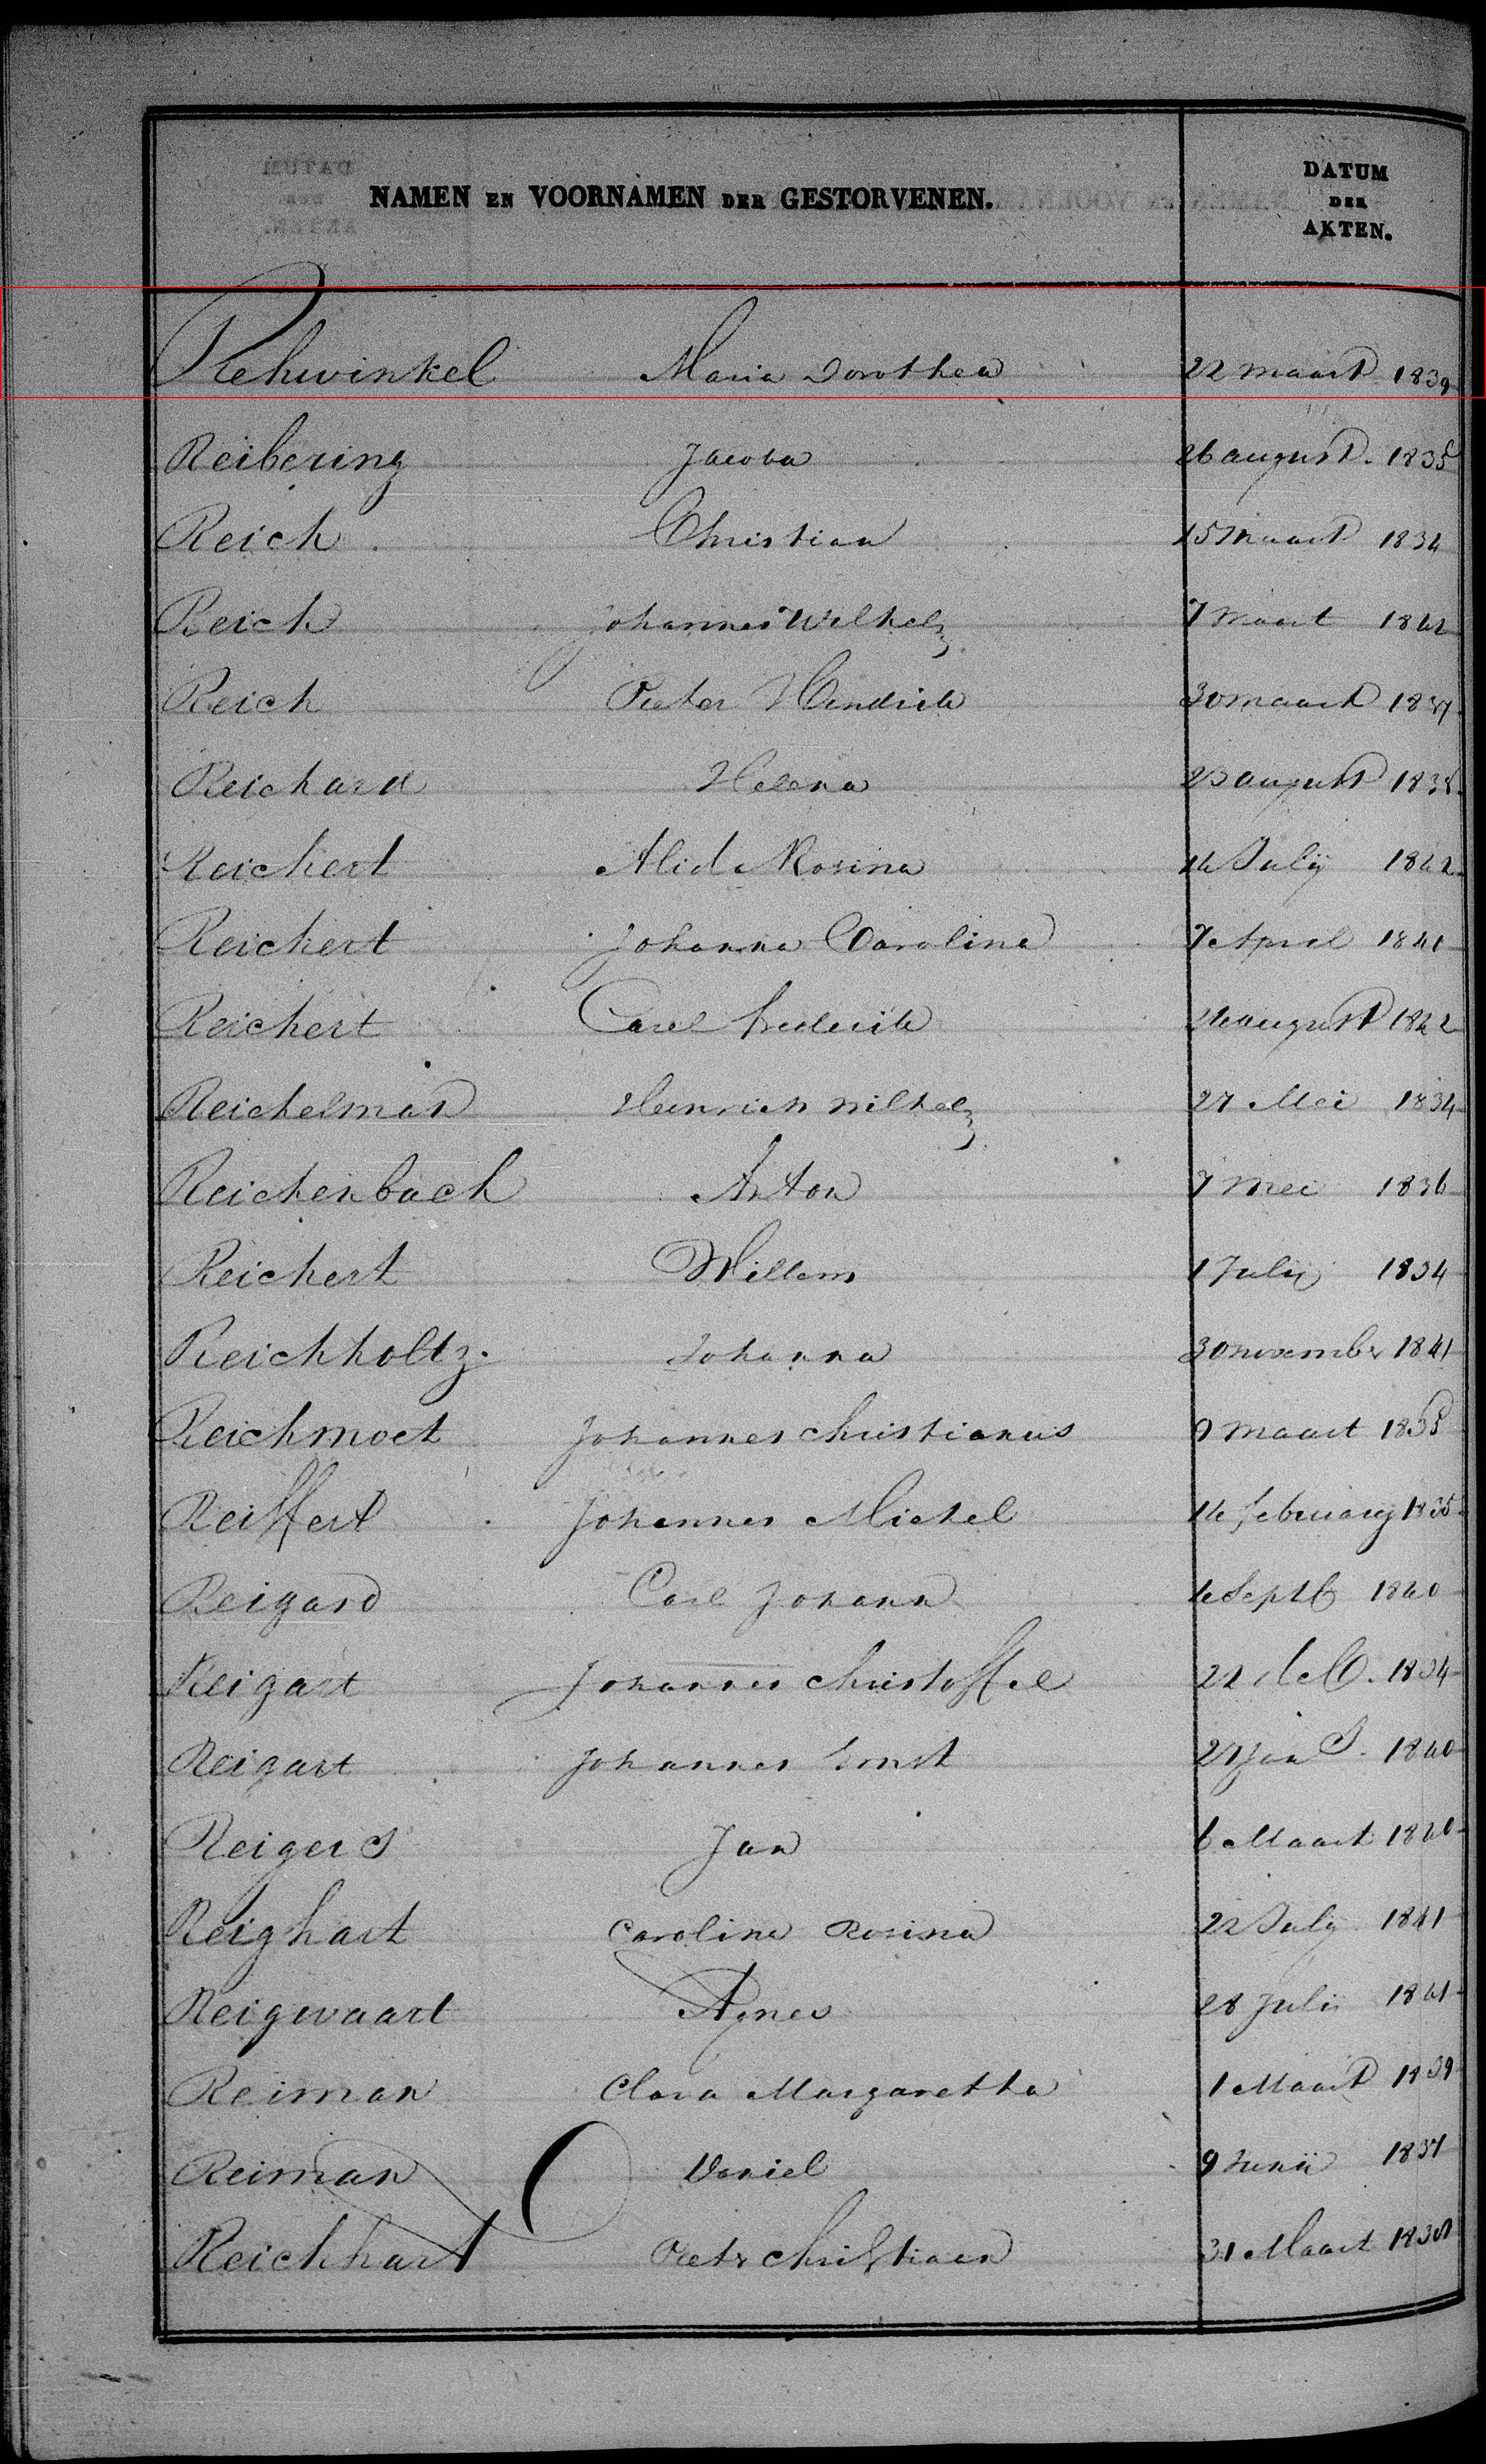 NAMEN EN VOORNAMEN DER GESTORVENEN. DATUM DER AKTEN.
Rehwinkel Maria Dorothea 22 maart 1839
Reibering Jacoba 26 august 1835
Reich Christian 15 maart 1834
Reich Johannes Wilhelm 7 maart 1842
Reich Pieter Hendrik 30 maart 1837
Reichard Helena 23 august 1838
Reichert Alida Rosina 14 Julij 1842
Reichert Johanna Caroline 7 April 1841
Reichert Carel Frederik 24 august 1842
Reichelman Heinrich Wilhelm 27 Mei 1834
Reichenbach Anton 7 mei 1836
Reichert Willem 1 Julij 1834
Reichholtz. Johanna 30 november 1841
Reichmoet Johannes Christianus 9 maart 1835
Reiffert Johannes Michel 14 february 1835
Reigard Carl Johann 4 Septb 1840
Reigart Johannes Christoffel 22 decb. 1834
Reigart Johannes Ernst 27 Jan 1840
Reigers Jan 6 Maart 1840
Reighart Caroline Rosina 22 July 1841
Reigwaart Agnes 28 Julij 1841
Reiman Clara Margaretha 1 Maart 1839
Reiman Daniel 9 Junii 1837
Reichhart Pietr Christiaan 31 Maart